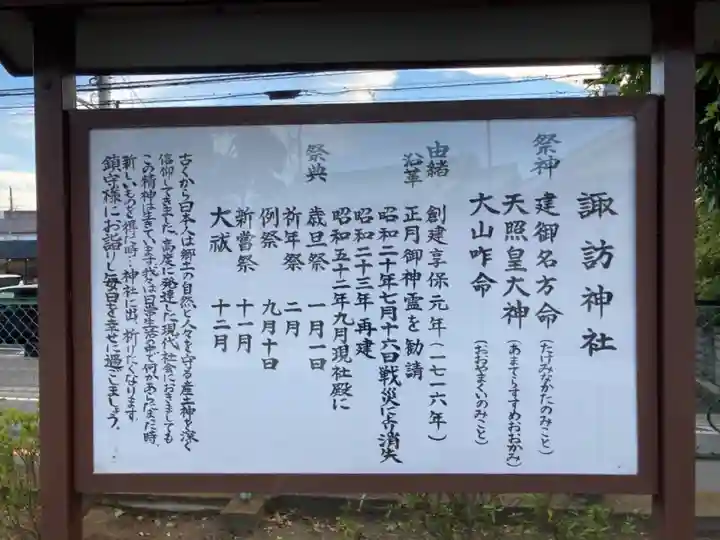 諏訪神社
祭神 建御名方命(たけみなかたのみこと)
天照皇大神(あまてらすすめおおかみ)
大山咋命(おおやまくいのみこと)
由緒
沿革
創建享保元年(一七一六年)
正月御神霊を勧請
昭和二十年七月十六日戦災に占消失
昭和二十三年再建
昭和五十二年九月現社殿に
祭典
歳旦祭 一月一日
祈年祭 二月
例祭 九月十日
新嘗祭 十一月
大祓 十二月
古くから日本人は郷土の自然と人々を守る産土神を深く
信仰してきました。高度に発達した現代社会におきましても
この精神は生きています。我々は日常生活の中で何かあらたまった時、
新しいものを得た時…神社に出、祈りたくなります。
鎮守様にお詣りし毎日を幸せに過ごましょう。